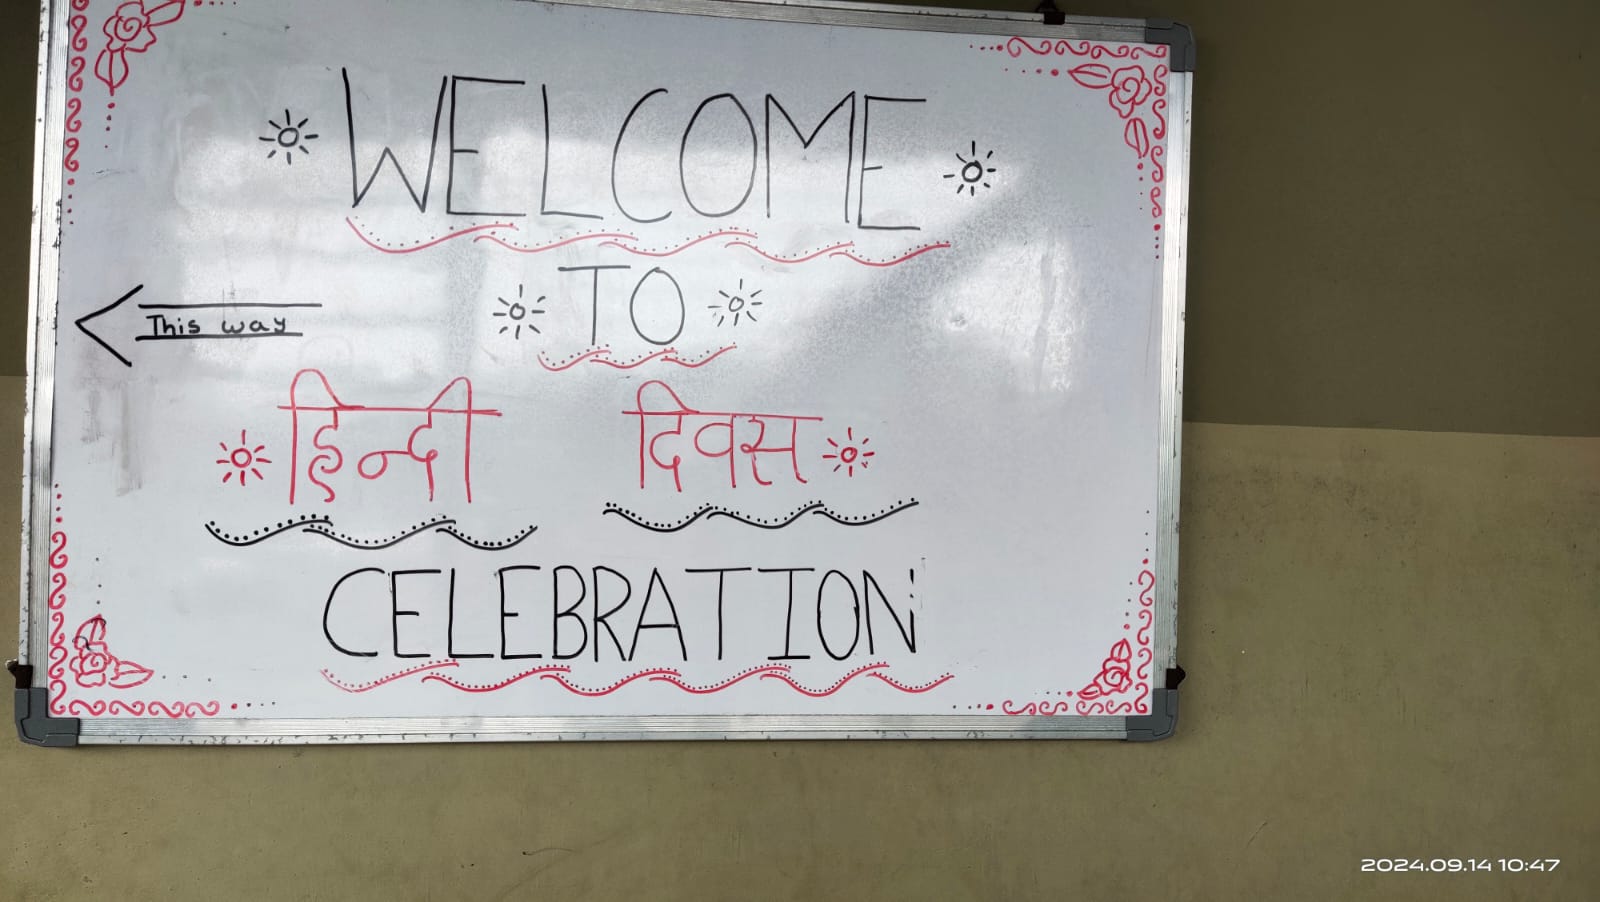 WELCOME
TO
This way
हिन्दी दिवस
CELEBRATION
2024.09.14 10:47